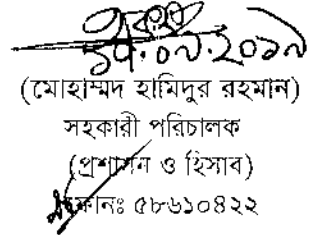 (মোহাম্মদ হামিদুর রহমান)
সহকারী পরিচালক
(প্রশাসন ও হিসাব)
ফোনঃ ৫৮৬১০৪২২